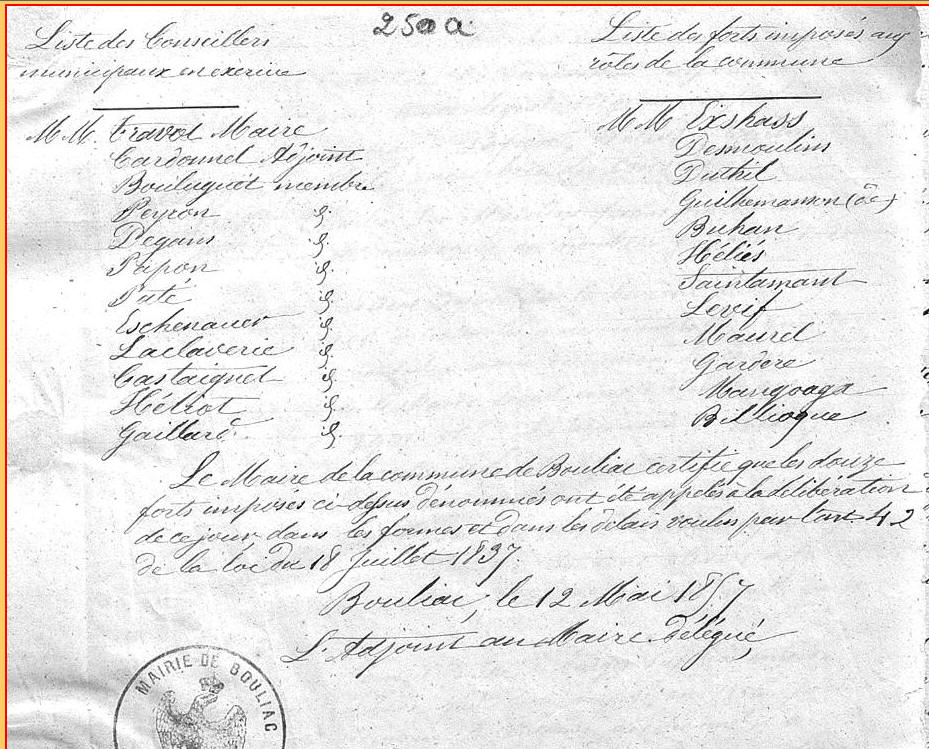 250 a
Liste des Conseillers
municipaux en exercice
M.M. Fravol Maire
Cardonnel Adjoint
Bouluguet membre
Peyron
Degans
Papon
Paté
Eschenauer
Laclaverie
Castaignet
Hétiot
Gaillard
Liste des forts imposés aux
rôles de la commune
M M Exshass
Desmoulins
Duthil
Guilhemanson
Buhan
Héliés
Saintamant
Levif
Maurel
Gardere
Mangoaga
Billioque
Le Maire de la commune de Bouliac certifie que les douze
forts imposés ci-dessus dénommés ont été appelés à la délibération
de ce jour dans les formes et dans les délais voulus par l'art 42
de la loi du 18 Juillet 1837
Bouliac, le 12 Mai 1857
L'Adjoint au Maire Délégué,
MAIRIE DE BOULIAC